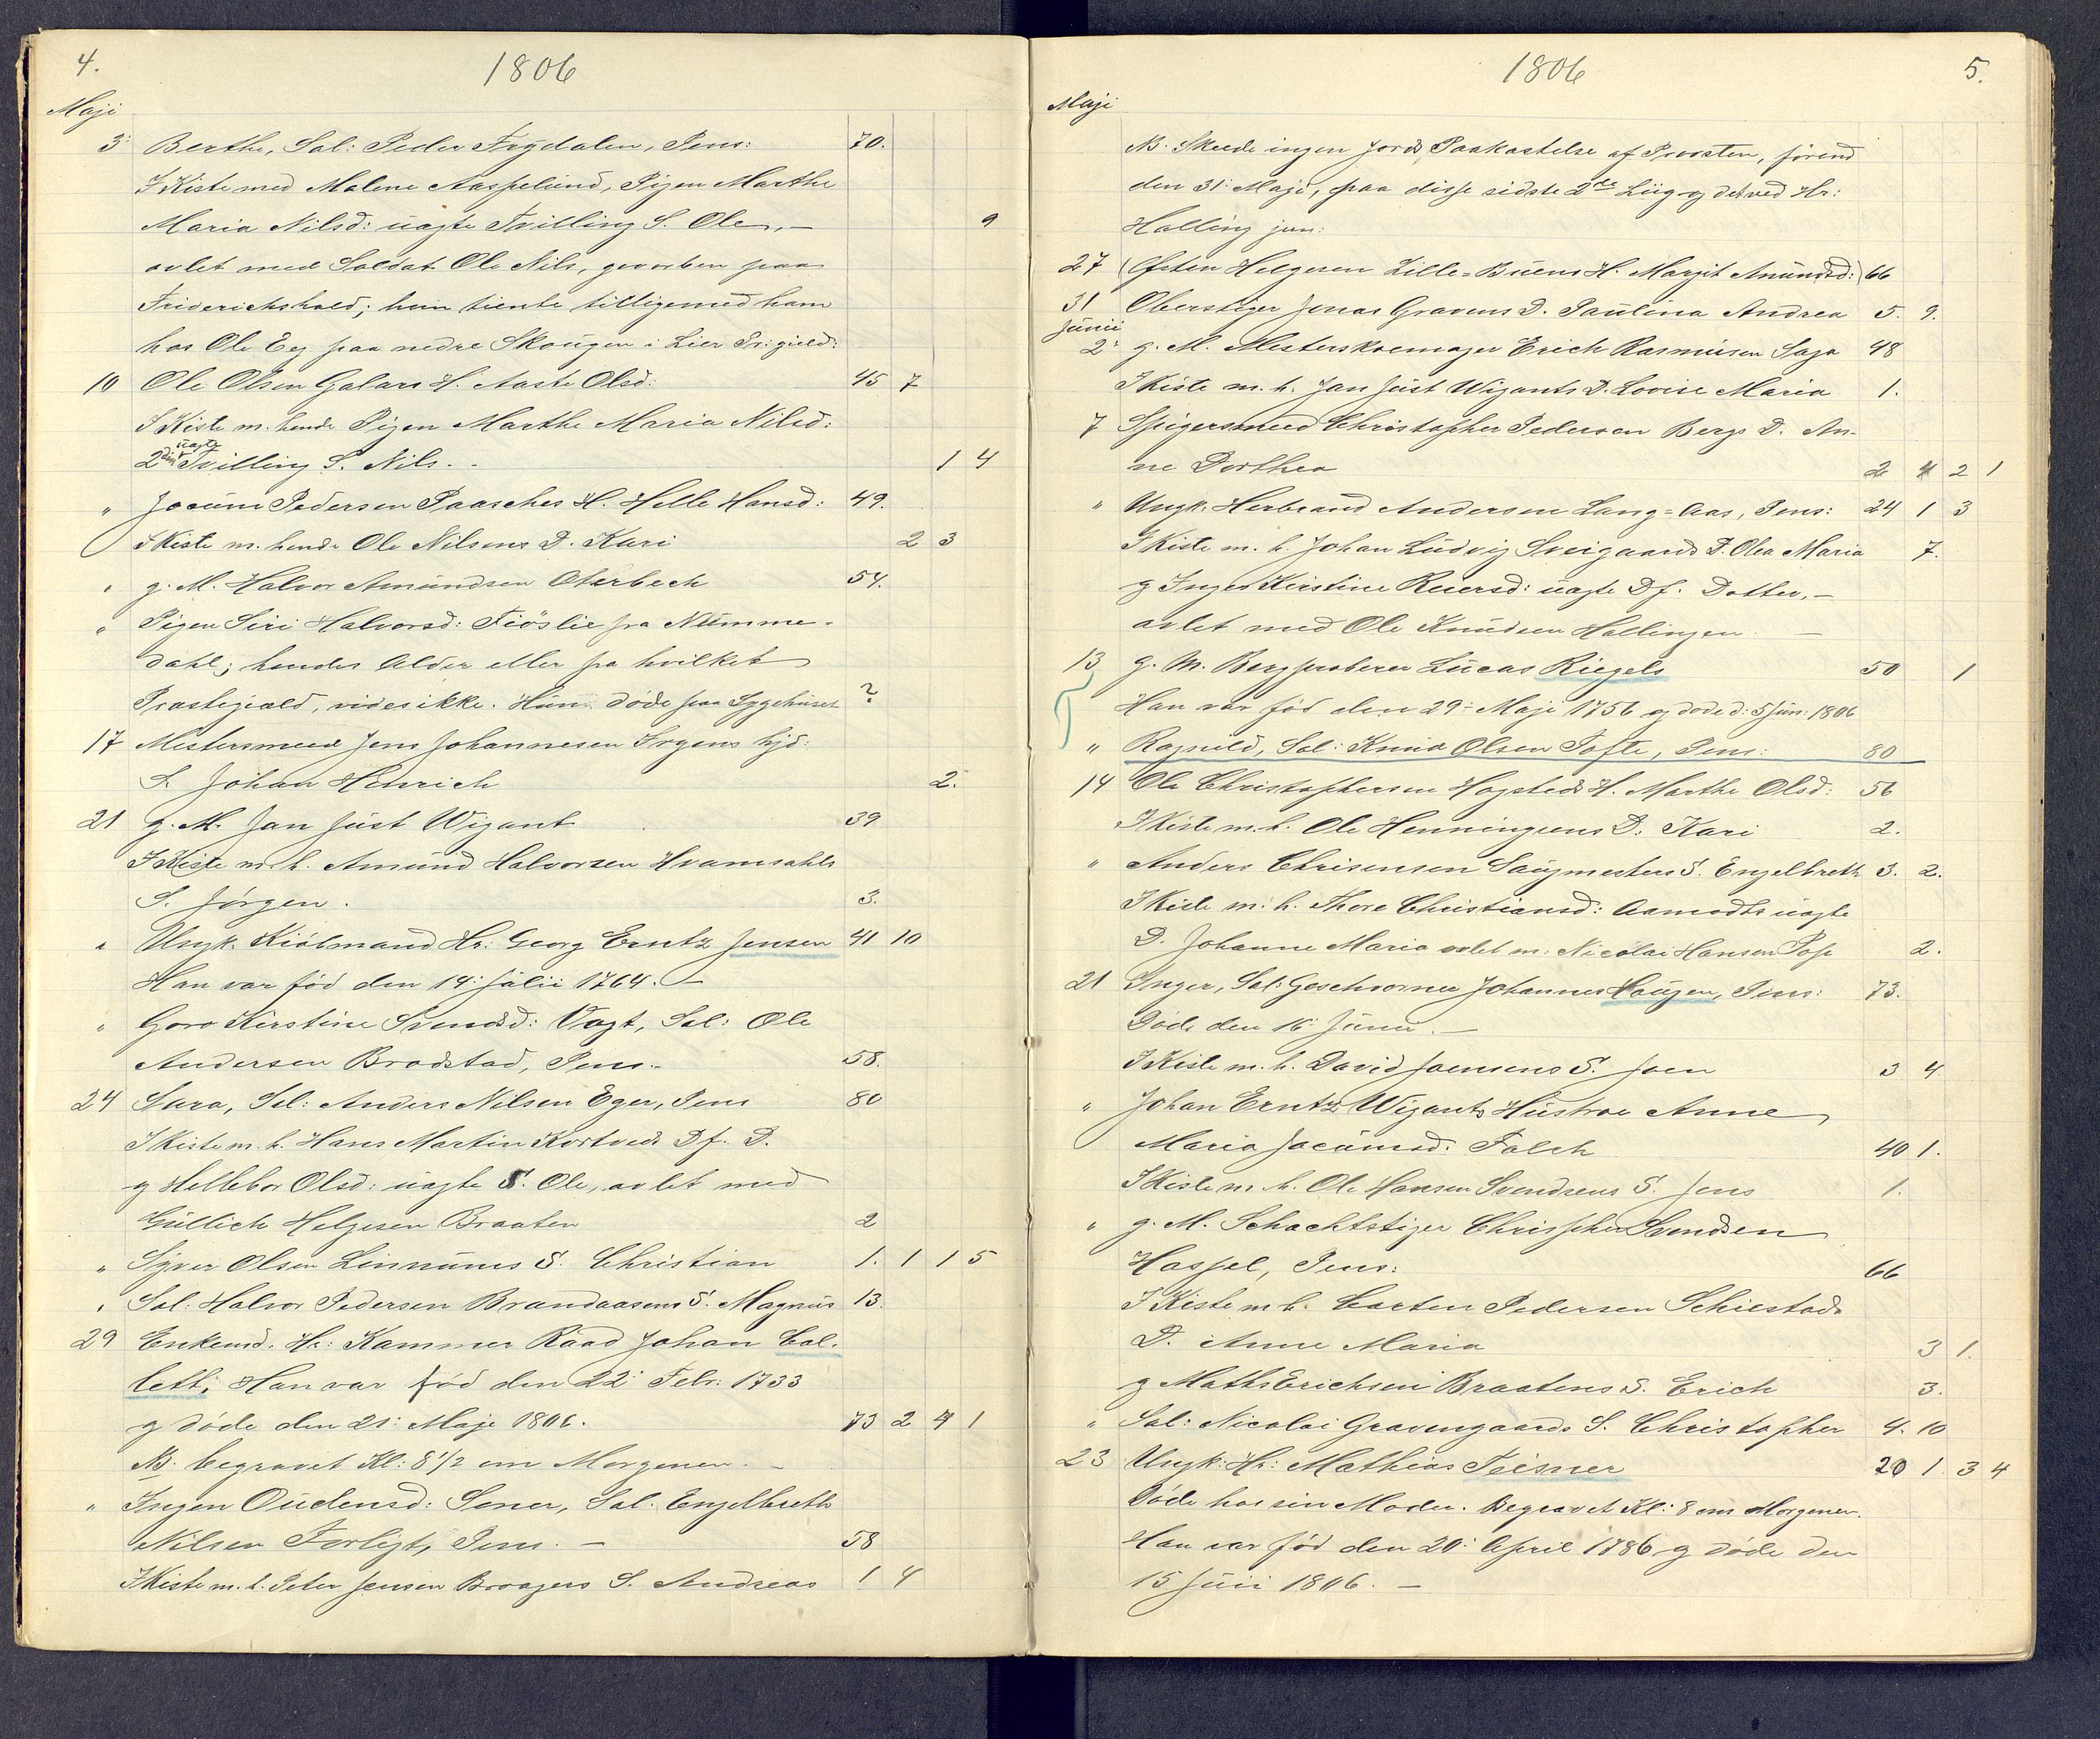 4.
1806
Maji
3 Berthe, Sal: Peder Frydalen, Pens: 70.
I Kiste med Malene Aaspelund, Pigen Marthe
Maria Nilsd: uagte Tvilling S. Ole, — 9
avlet med Soldat Ole Nils, gevorben paa
Friderichshald; hun tiente tilligemed ham
hos Ole Eeg paa nedre Skougen i Lier Pr: gield:
10 Ole Olsen Galaas H. Aaste Olsd: 45 7
I Kiste m. hende Pigen Marthe Maria Nilsd:
2den uagte Tvilling S. Nils. - 1 4
" Jocum Pedersen Paasches H. Helle Hansd: 49.
I Kiste m. hende Ole Nilsens D. Kari 2 3
" g. M. Halvor Amundsen Oterbech 54.
" Pigen Siri Halvorsd: Fiöslie fra Numme-
dahl; hendes Alder eller fra hvilket
Prestegiæld, vides ikke. Hun döde paa Sygehuset ?
17 Mestersmed Jens Johannesen Irgens hjd:
S. Johan Henrich 2.
21 g. M. Jan Just Wigant 39
I Kiste m. h. Amund Halvorsen Hvamsahls
S. Jörgen. 3.
" Ungk. Kiöbmand Hr: Georg Erntz Jensen 41 10
Han var föd den 19: Julii 1764. —
" Goro Kirstine Svendsd: Vogt, Sal: Ole
Andersen Brodstad, Pens. 58.
24 Sara, Sel: Anders Nilsen Eger, Pens 80
I Kiste m. h. Hans Martin Kortveds Df. D.
g Hellebor Olsd: uagte S. Ole, avlet med
Gullich Helgesen Braaten 2
" Syver Olsen Linnunes S. Christian 1. 1 1 5
" Sal: Halvor Pedersen Brandaasens S. Magnus 13.
29 Enkemd. Hr: Kammer Raad Johan Col-
lett; Han var föd den 22: Febr: 1733
g döde den 21: Maje 1806. 73 2 4 1
NB. begravet Kl: 8 1/2 om Morgenen. —
" Ingen Oudensd: Sener, Sal. Engelbreth
Nilsen Forligt, Pens. — 58
I Kiste m. h. Peter Jensen Braagers S. Andreas 1 4
1806
5.
Maji
NB. Skeede ingen Jords Paakastelse af Provsten, förend
den 31: Maji, paa disse sidste 2de Liig g det ved Hr:
Halling jun:
27 (Östen Helgesen Lille-Buens H. Margit Amundsd:) 66
31 Oberstiger Jonas Gravens D. Paulina Andrea 5. 9.
Junii
2: g. M. Mesterskoemager Erich Rasmusen Saga 48
I Kiste m. h. Jan Just Wigants D. Lovise Maria 1.
7 Spigersmed Christopher Pedersen Bergs D. An-
ne Dorthea 2 4 2 1
" Ungk. Herbrand Andersen Lang-Aas, Pens: 24 1 3
I Kiste m. h. Johan Ludvig Sveigaards D. Olea Maria 7.
g Inger Kirstine Reiersd: uagte Df. Datter, —
avlet med Ole Knudsen Hallingen. —
13 g. M. Bergproberer Lucas Riegels 50 1
Han var föd den 29: Maji 1756 g döde d: 5 Jun: 1806
" Ragnild, Sal: Knud Olsen Tofte, Pens: 80
14 Ole Christophersen Hogsteds H. Marthe Olsd: 56
I Kiste m. h. Ole Henningsens D: Kari 2.
" Anders Chrisensen Saugmesters S. Engelbreth 3. 2.
I Kiste m. h. Thore Christiansd: Aamodts uagte
D. Johanne Maria avlet m. Nicolai Hansen Pose 2.
21 Inger, Sal: Geschvorner Johannes Haugen, Pens: 73.
Döde den 16 Junii. —
I Kiste m. h. David Joensens S. Joen 3 4
" Johan Erntz Wigants Hustroe Anne
Maria Jacumsd: Falch 40 1.
I Kiste m. h. Ole Hansen Svendsens S. Jens 1.
" g. M. Schachtstiger Chrispher Svendsen
Hassel, Pens: 66
I Kiste m h. Carten Pedersen Schiestads
D. Anne Maria 3 1.
g Maths Erichsen Braatens S. Erich 3.
" Sal: Nicolai Gravengaards S. Christopher 4. 10
23 Ungk: Hr: Mathias Teisner 20 1 3 4
Döde hos sin Moder. Begravet Kl: 8 om Morgenen.
Han var föd den 20: April 1786 g döde den
15 Junii 1806. —